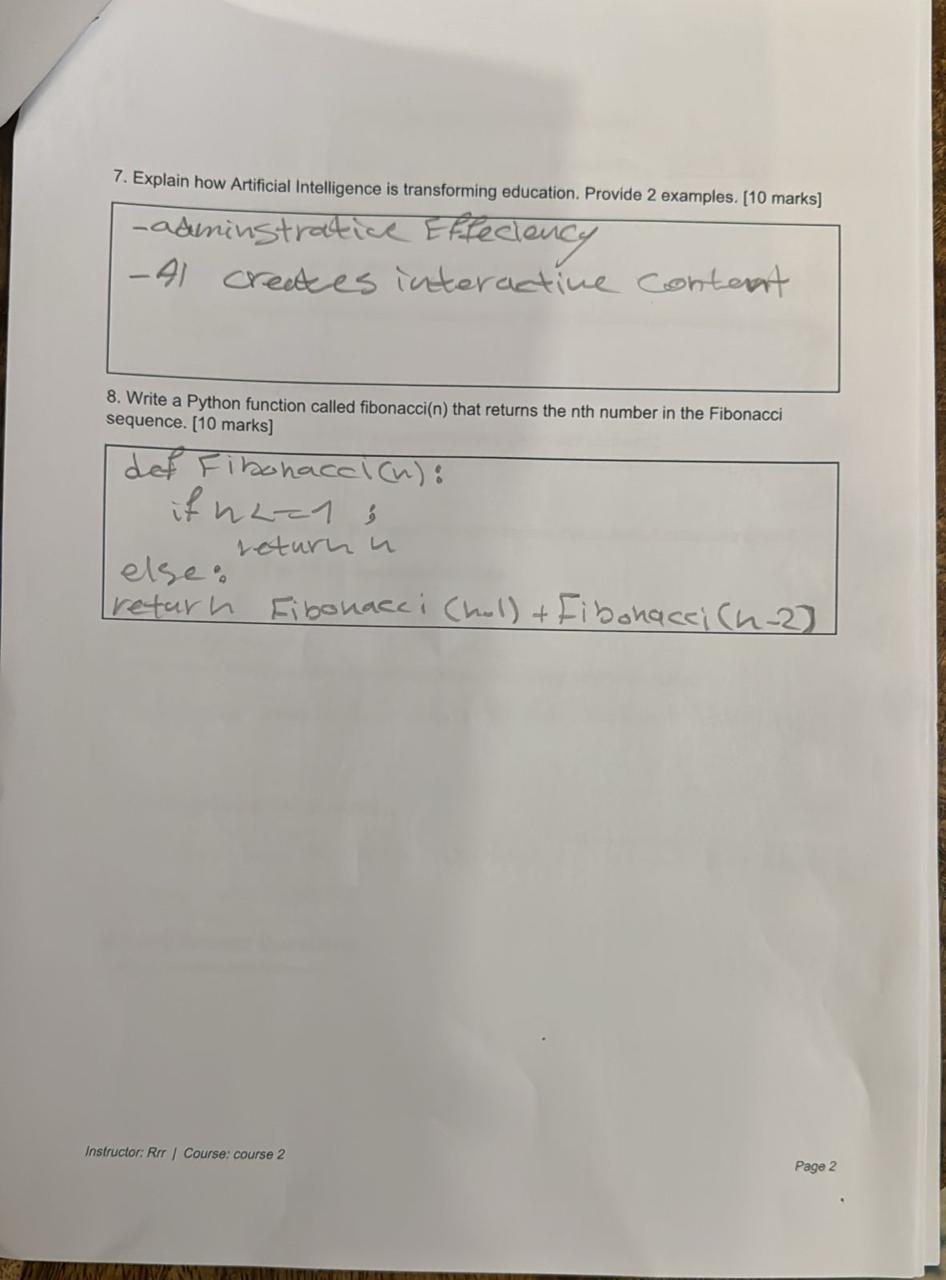 7. Explain how Artificial Intelligence is transforming education. Provide 2 examples. [10 marks]
-adminstrative Effeciency
-AI creates interactive Content
8. Write a Python function called fibonacci(n) that returns the nth number in the Fibonacci
sequence. [10 marks]
def Fibonacci(n):
if n<=1 ;
return n
else:
return Fibonacci (n-1) + Fibonacci (n-2)
Instructor: Rrr | Course: course 2
Page 2